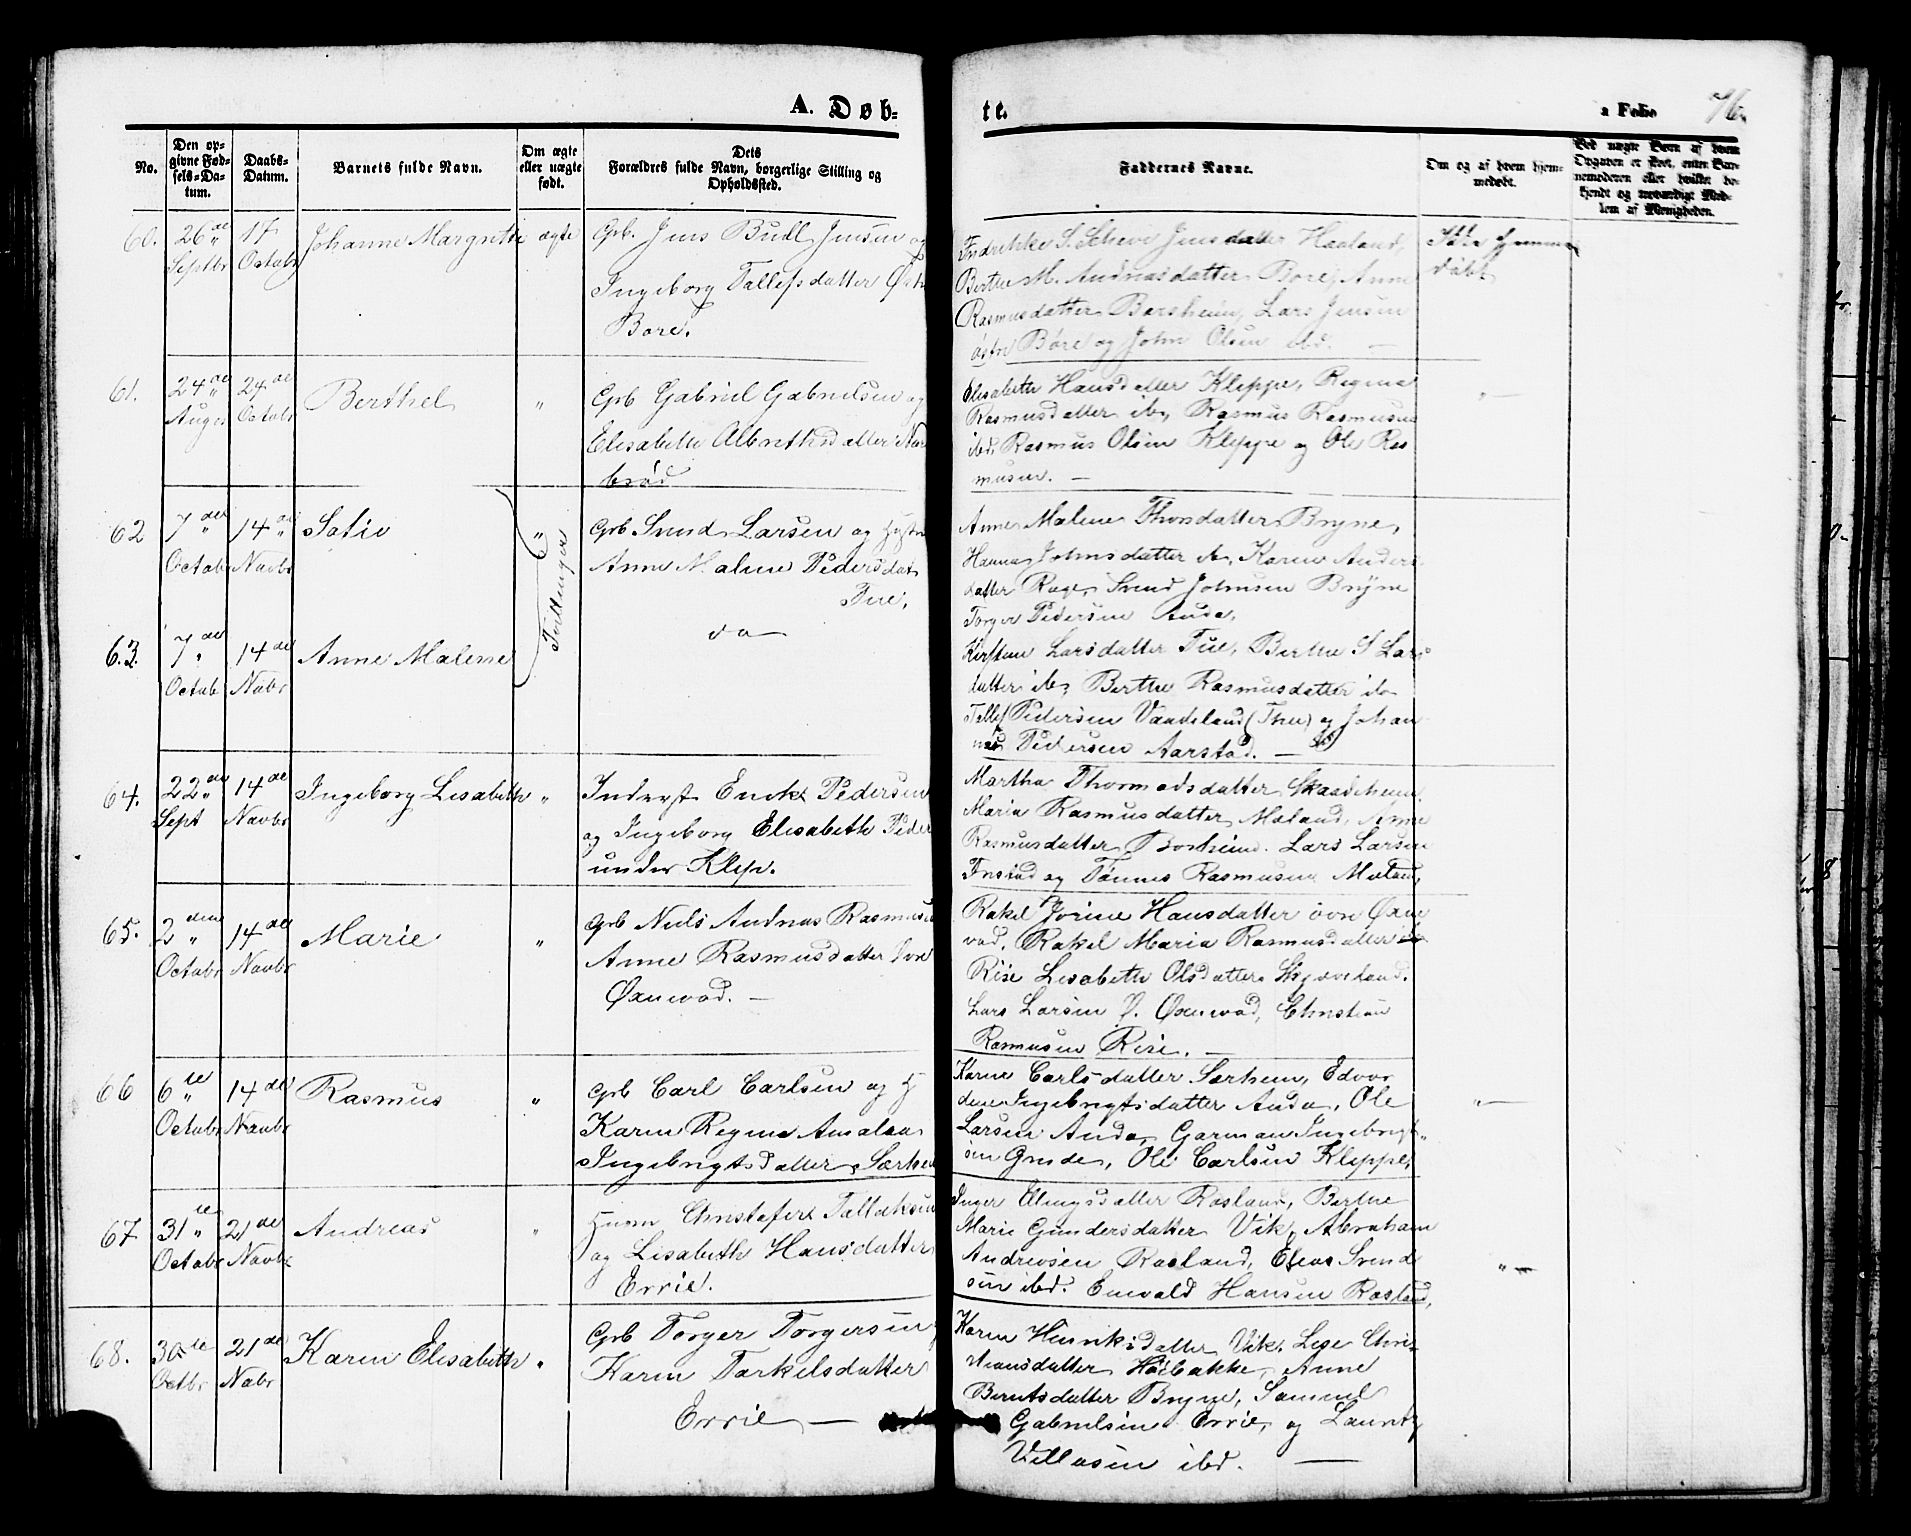 A. Døb-
te.
a Folio 76.
No.
Den op-
givne Fød-
sels-Da-
tum.
Daabs-
Datum.
Barnets fulde Navn.
Om ægte
eller uægte
født.
Dets
Forældres fulde Navn, borgerlige Stilling og
Opholdssted.
Faddernes Navne.
Om og af hvem hjem-
medøbt.
60.
26de
Septbr
17
Octobr
Johanne Margrethe
ægte
Grb. Jens Budl Jensen og
Ingeborg Tallefsdatter Østr
Bore.
Jensdatter Haaland,
Berthe M. Andreasdatter Bore, Anne
Rasmusdatter Borsheim, Lars Jensen
østre Bore og John Olsen ibd. —
Ikke hjemme
døbt
61.
24de
August
24de
Octobr
Berthel
"
Grb Gabriel Gabrielsen og
Elisabeth Albrethsdatter Nær
brød
Elisabeth Hansdatter Kleppe, Regine
Rasmusdatter ib, Rasmus Rasmusen
ibd, Rasmus Olsen Kleppe og Ole Ras
musen. —
"—
62
7de
Octobr
14de
Novbr
"
Tvillinger
Grb Svend Larsen og Hustru
Anne Malene Pedersdat
Tue.
Anne Malene Thorsdatter Bryne,
Hanna Johnsdatter ib, Karen Anders
datter Rage, Svend Johnsen Bryne
Torger Pedersen Auda.
63.
7de
Octob
14de
Nobr
Anne Malene
do
Kirsten Larsdatter Tue, Berthe S Lars
datter ib, Berthe Rasmusdatter ib
Tallef Pedersen Vandeland (Thu) og Johan
nes Pedersen Aarstad. —
64.
22de
Sept
14de
Novbr
Ingeborg Lisabeth
"
Inderst Enok Pedersen
og Ingeborg Elisabeth Peder
under Klep.
Martha Thormodsdatter Skadeheim
Maria Rasmusdatter Maland, Anne
Rasmusdatter Borsheim. Lars Larsen
og Tønnes Rasmusen Maland,
65.
2den
Octobr
14de
Novbr
Marie
"
Grb Niels Andreas Rasmusen
Anne Rasmusdatter Øvre
Øxnevad. —
Rakel Jorine Hansdatter øvre Øxne
vad, Rakel Maria Rasmusdatter
Rise Lisabeth Olsdatter Skjæveland.
Lars Larsen Ø. Øxnevad, Christian
Rasmusen Rise. —
66
6te
Octobr
14de
Novbr
Rasmus
"
Grb Carl Carlsen og H
Karen Regine Amalia
Ingebrigtsdatter Sørheim
Karine Carlsdatter Sørheim, Edvar
dine Ingebrigtsdatter Auda, Ole
Larsen Auda, Garman Ingebrigt-
sen Grude, Ole Carlsen Kleppe,
"—
67
31te
Octobr
21de
Novbr
Andreas
"
Husm Christofer Tallaksen
og Lisabeth Hansdatter
Orrie.
Inger Ellingsdatter Rosland, Berthe
Marie Gundersdatter Vik, Abraham
Andreosen Rosland, Elias Svend
sen ibd. Enevald Hansen Rosland,
"—
68.
30te
Octbr
21de
Nobr
Karen Elisabeth
"
Grb Torger Torgersen
Karen Torkelsdatter
Orrie —
Karen Henriksdatter Vik, Lise Chri-
stiansdatter Høibakke, Anne
Berntsdatter Bryne, Samuel
Gabrielsen Orrie, og Lauritz
Villasen ibd. —